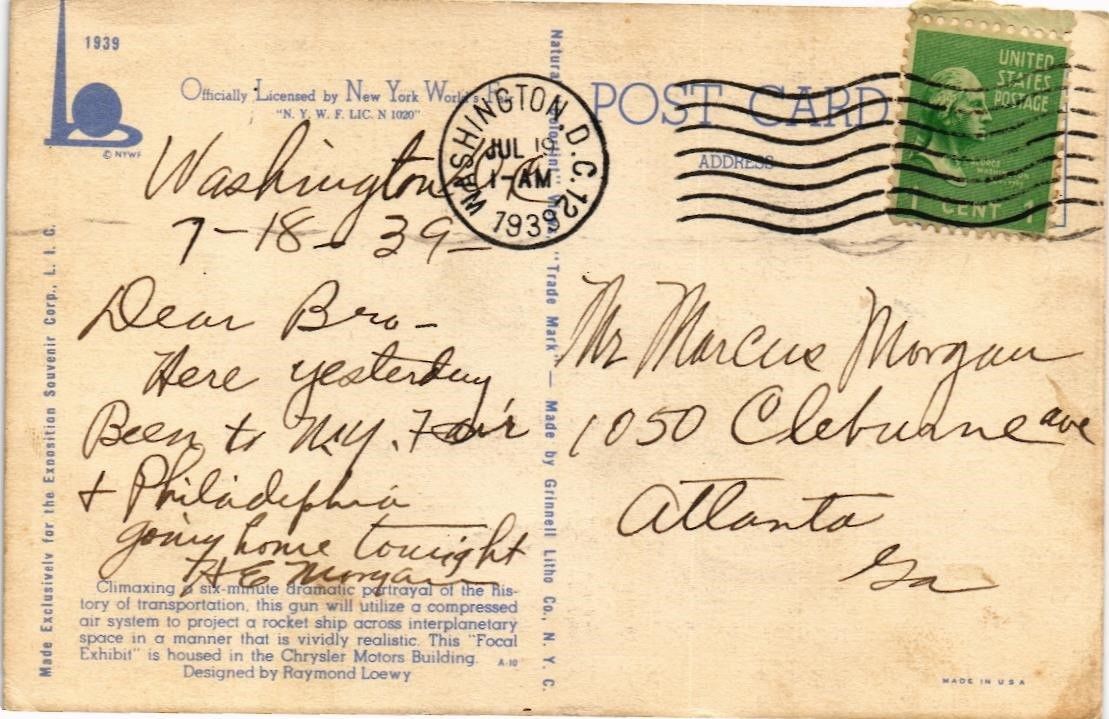 1939
© NYWF
Officially Licensed by New York World's Fair
"N. Y. W. F. LIC. N 1020"
POST CARD
ADDRESS
WASHINGTON, D.C. 12
JUL 19
1-AM
1939
UNITED
STATES
POSTAGE
GEORGE
WASHINGTON
1 CENT 1
Washington
7-18-39-
Dear Bro-
Here yesterday
Been to N.Y. Fair
+ Philadephia
going home tonight
H E Morgan
Mr Marcus Morgan
1050 Cleburne ave
Atlanta
Ga
Climaxing a six-minute dramatic portrayal of the his-
tory of transportation, this gun will utilize a compressed
air system to project a rocket ship across interplanetary
space in a manner that is vividly realistic. This "Focal
Exhibit" is housed in the Chrysler Motors Building. A-10
Designed by Raymond Loewy
Made Exclusively for the Exposition Souvenir Corp., L. I. C.
"Trade Mark" — Made by Grinnell Litho Co., N. Y. C.
MADE IN U S A